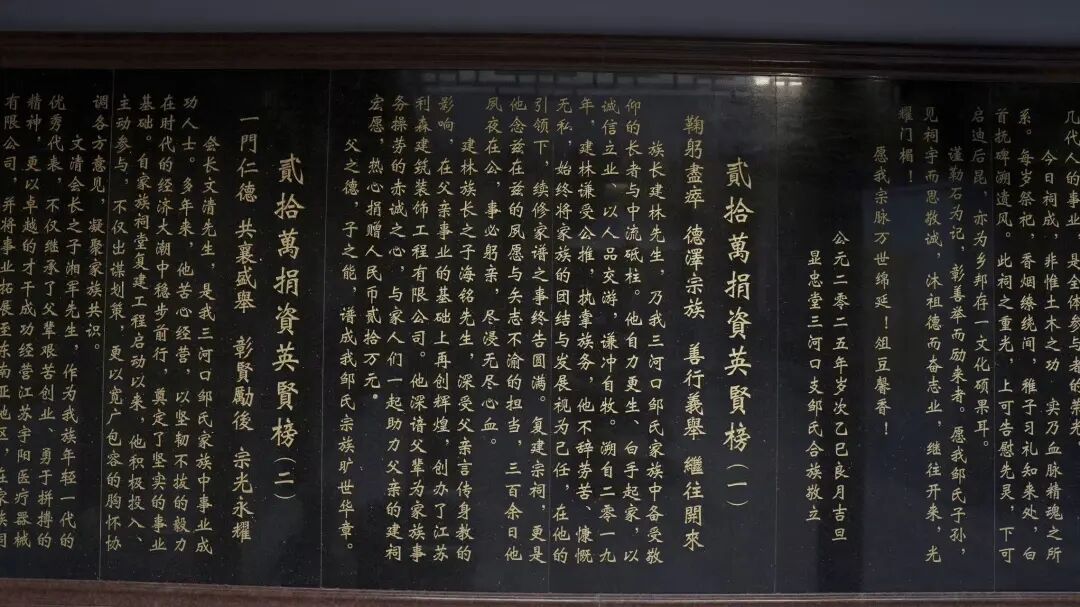 几代人的事业，是全体参与者的荣光。
今日祠成，非惟土木之功，实乃血脉精魂之所
系。每岁祭祀，香烟缘绕间，稚子习礼知来处，白
首抚碑溯遗风。此祠之重光，上可告慰先灵，下可
启迪后昆，亦为乡邦存一文化硕果耳。
谨勒石为记，彰善举而励来者。愿我邹氏子孙，
见祠宇而思敬诚，沐祖德而奋志业，继往开来，光
耀门楣！
愿我宗脉万世绵延！俎豆馨香！
公元二零二五年岁次乙巳良月吉旦
显忠堂三河口支邹氏合族敬立
貳拾萬捐資英賢榜（一）
鞠躬盡瘁 德澤宗族 善行義舉 繼往開來
族长建林先生，乃我三河口邹氏家族中备受敬
仰的长者与中流砥柱。他自力更生、白手起家，以
诚信立业，以人品交游，谦冲自牧。溯自二零一九
年，建林谦受公推，执掌族务，他不辞劳苦、慷慨
无私，始终将家族的团结与发展视为己任，在他的
引领下，续修家谱之事终告圆满。复建宗祠，更是
他念兹在兹的夙愿与矢志不渝的担当，三百余日他
夙夜在公，事必躬亲，尽浸无尽心血。
建林族长之子海铭先生，深受父亲言传身教的
影响，在父亲事业的基础上再创辉煌，创办了江苏
利森建筑装饰工程有限公司。他深谙父辈为家族事
务操劳的赤诚之心，与家人们一起助力父亲的建祠
宏愿，热心捐赠人民币贰拾万元。
父之德，子之能，谱成我邹氏宗族旷世华章。
貳拾萬捐資英賢榜（二）
一門仁德 共襄盛舉 彰賢勵後 宗光永耀
会长文清先生，是我三河口邹氏家族中事业成
功人士。多年来，他苦心经营，以坚韧不拔的毅力
在时代的经济大潮中稳步前行，奠定了坚实的事业
基础。自家族祠堂复建工程启动以来，他积极投入、
主动参与，不仅出谋划策，更以宽广包容的胸怀协
调各方意见，凝聚家族共识。
文清会长之子湘罕先生，作为我族年轻一代的
优秀代表，不仅继承了父辈艰苦创业、勇于拼搏的
精神，更以卓越的才干成功经营江苏宇阳医疗器械
有限公司，并将事业拓展至东南亚地区，在家族祠